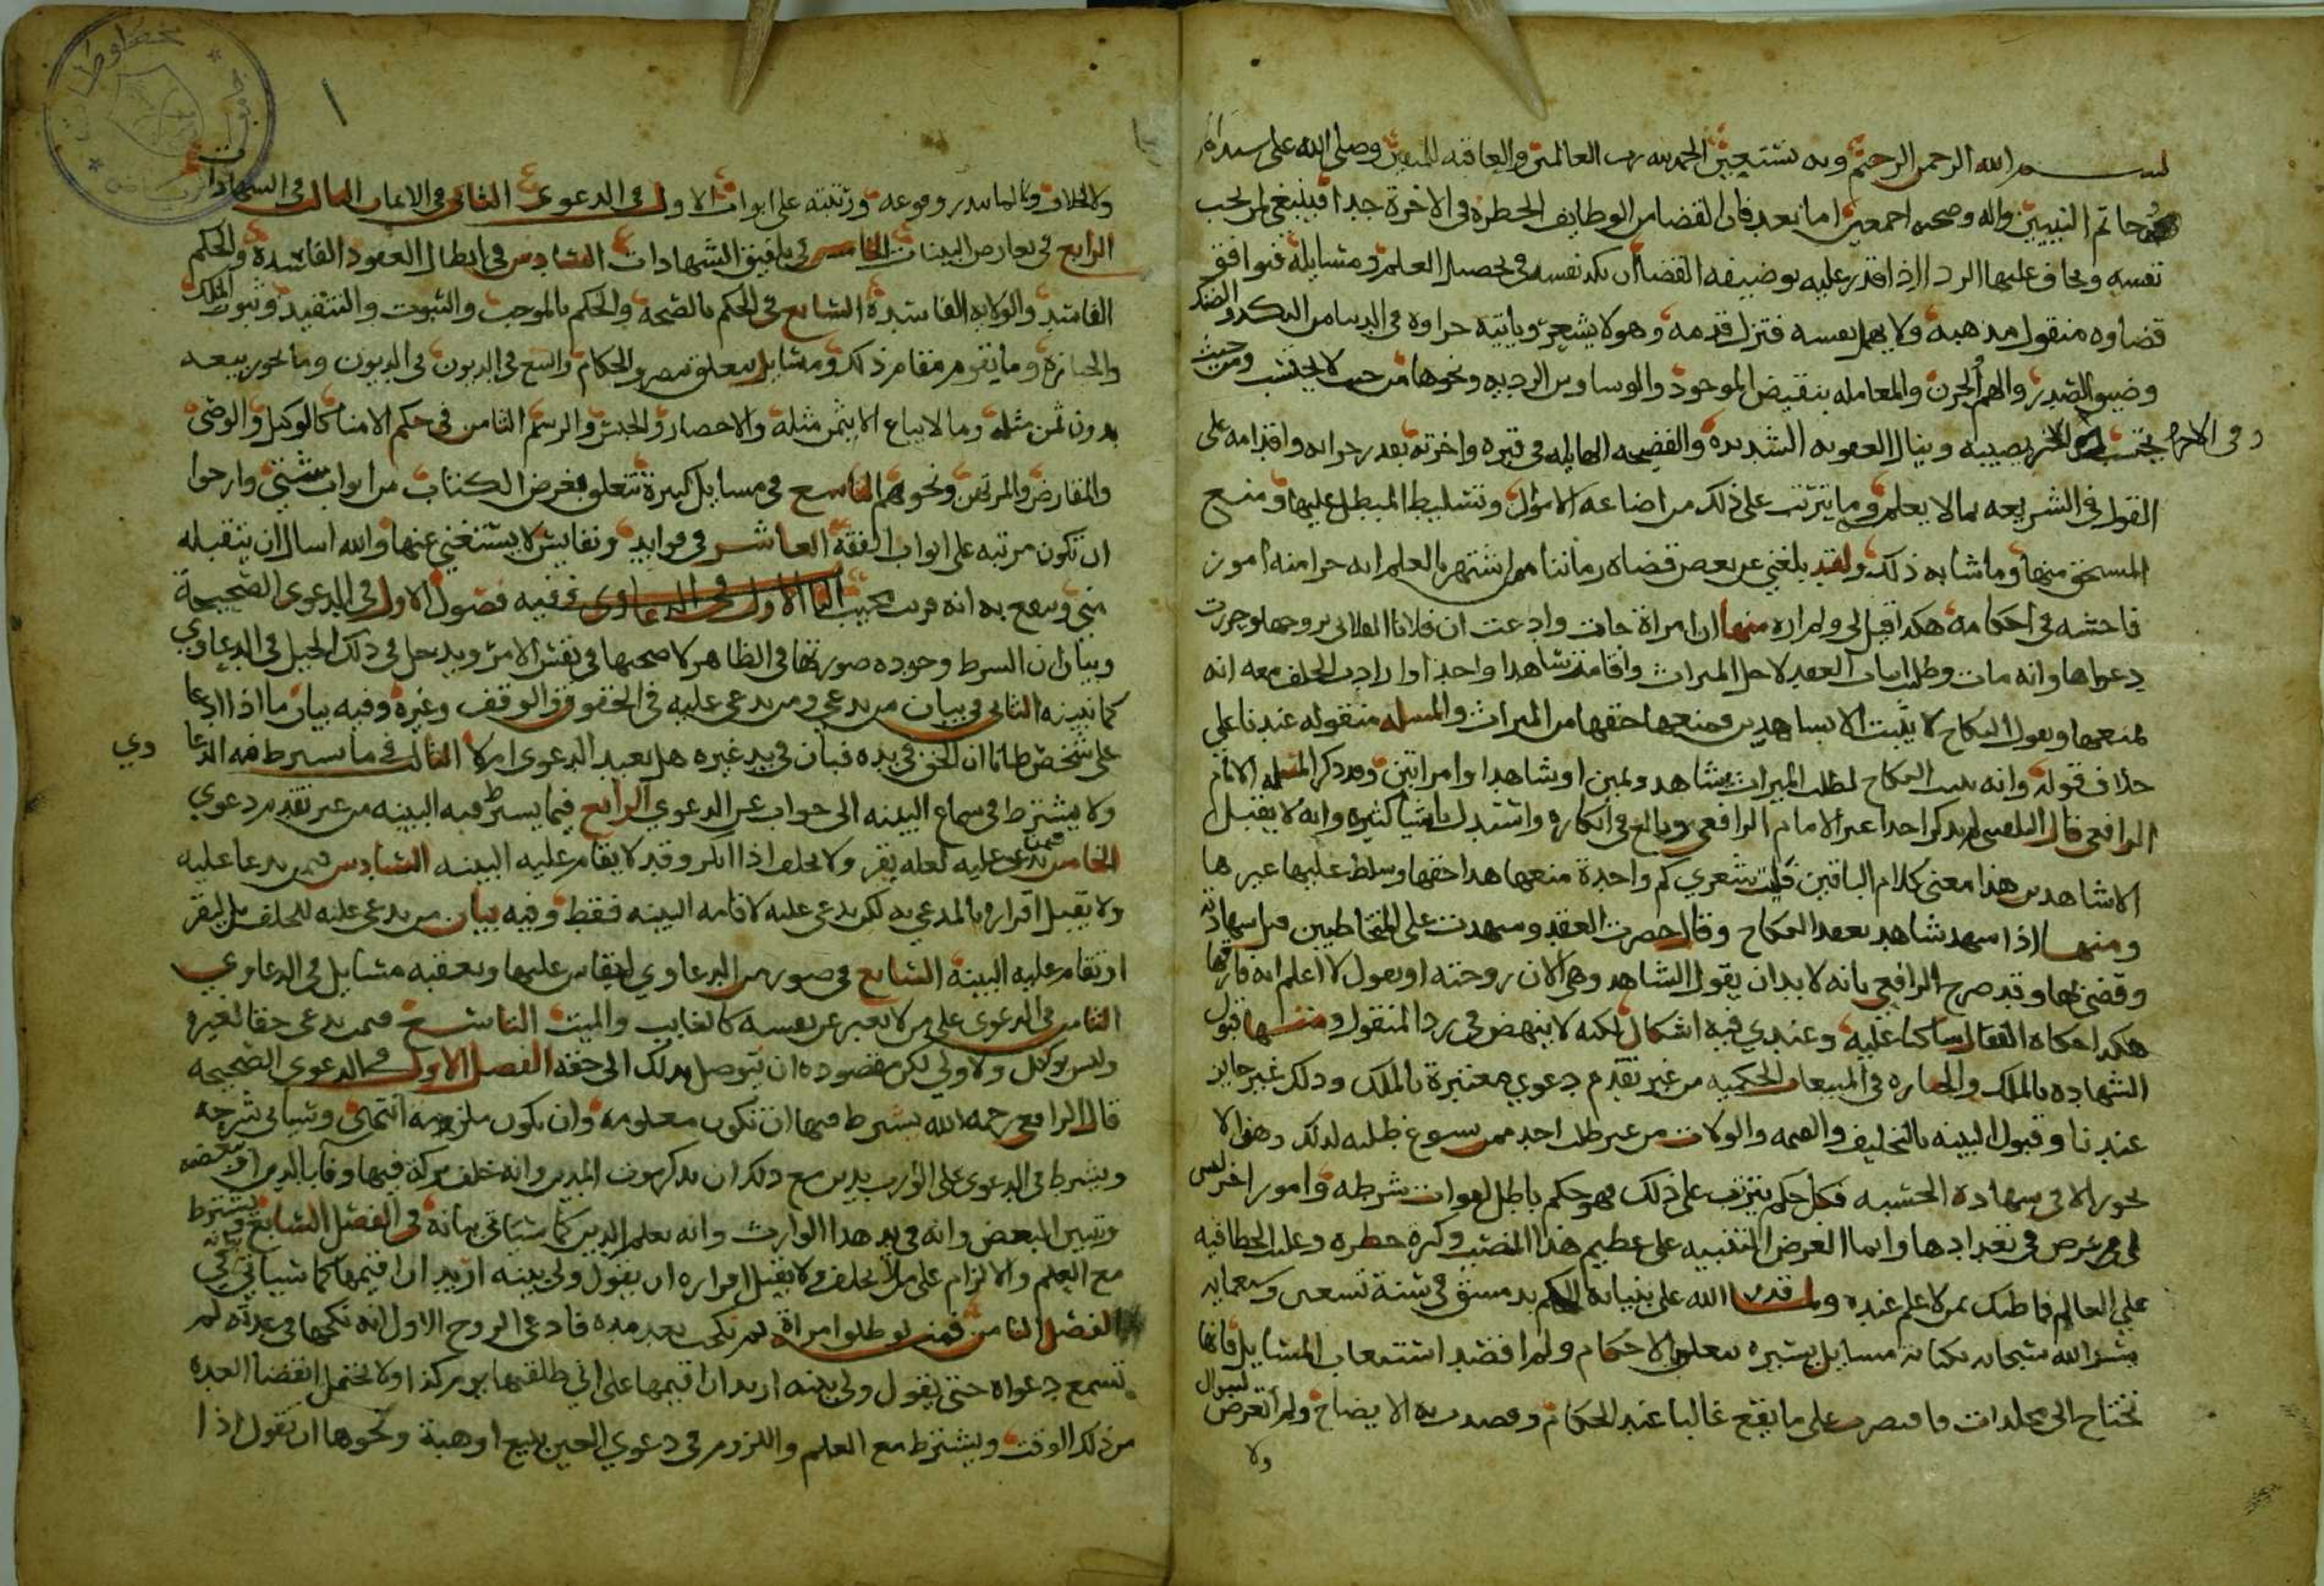 بسم الله الرحمن الرحيم وبه نستعين الحمد لله رب العالمين والعاقبة للمتقين وصلى الله على سيدنا
خاتم النبيين واله وصحبه اجمعين اما بعد فان القضا من الوظايف الخطرة في الاخرة جدا فينبغي لمن يحب
نفسه ويخاف عليها الردا اذا قدر عليه بوضيفه القضا ان يكد نفسه في تحصيل العلم ومسايله فيوافق
قضاوه منقول مذهبه ولا يهمل نفسه فتزل قدمه وهو لا يشعر وياتيه جزاوه في الدنيا من النكد والضنك
وضيق الصدر والهم والحزن والمعامله بنقيض الموجود والوساوس الرديه ونحوها من حيث لا يحتسب ومن حيث
وفي الاخرة
يحتسب يصيبه وينال العقوبه الشديدة والفضيحه الهايله في قبره واخرته بقدر جراته واقدامه على
القول في الشريعه بما لا يعلم وما يترتب على ذلك من اضاعه الاموال وتسليط المبطل عليها ومنع
المستحق منها وما شابه ذلك ولقد بلغني عن بعض قضاة زماننا ممن اشتهر بالعلم انه جرا منه امور
فاحشه في احكامه هكذا قيل لي ولم اره منها ان امراة جات وادعت ان فلانا الفلاني زوجها وجررت
دعواها وانه مات وطلب اثبات العقد لاجل الميراث واقامت شاهدا واحدا وارادت الحلف معه انه
يمنعها ويقول النكاح لا يثبت الا بشاهدين فمنعها حقها من الميراث والمسله منقوله عندنا على
خلاف قوله وانه يثبت النكاح لطلب الميراث بشاهد ويمين او شاهدا وامراتين وقد ذكر المسله الامام
الرافعي قال البلقيني لم يذكر احدا غير الامام الرافعي وبالغ في انكاره واستدل باشيا كثيره وانه لا يقبل
الا شاهدين هذا معنى كلام الباقين فليت شعري كم واحدة منعها هذا حقها وسلط عليها غيرها
ومنها اذا شهد شاهد بعقد النكاح وقال حضرت العقد وشهدت على المتخاطبين قبل شهادته
وقضى بها وقد صرح الرافعي بانه لا بد ان يقول الشاهد وهي الان زوجته او يقول لا اعلم انه فارقها
هكذا حكاه القفال ساكتا عليه وعندي فيه اشكال لكنه لا ينهض في رد المنقول ومنها قبول
الشهاده بالملك والحيازه في المبيعات الحكميه من غير تقدم دعوي معتبرة بالملك وذلك غير جايز
عندنا وقبول البينه بالتخليف والصحه والولات من غير طلب احد ممن يسوغ طلبه لذلك وهو لا
يجوز الا في شهادة الحسبه فكل حكم يترتب على ذلك فهو حكم باطل لفوات شرطه وامور اخر ليس
لي غرض في تعدادها وانما الغرض التنبيه على عظيم هذا المنصب وكثرة خطره وغلبت الخطا فيه
على العالم فما ظنك بمن لا علم عنده ولما قدر الله على بنيابة الحكم بدمشق في سنة تسعين وسبعمايه
يسر الله سبحانه بكتابة مسايل يسيره تتعلق بالاحكام ولم اقصد استيعاب المسايل فانها
تحتاج الى مجلدات فاقتصرت على ما يقع غالبا عند الحكام وقصدت به الايضاح ولم اتعرض لسوال
ولا
ولا لخلاف ولا لما يندر وقوعه ورتبته على ابواب الاول في الدعوى الثاني في الايمان الثالث في الشهادات
الرابع في تعارض البينات الخامس في تلفيق الشهادات السادس في ابطال العقود الفاسدة والحكم
الفاسد والولايه الفاسدة السابع في الحكم بالصحه والحكم بالموجب والثبوت والتنفيذ وثبوت الملك
والحيازة وما يقوم مقام ذلك ومسايل تتعلق بمصر والحكام والبيع في الديون في الديون وما يجوز بيعه
بدون ثمن مثله وما لا يباع الا بثمن مثله والاحصار والحبس والرسم الثامن في حكم الامنا كالوكيل والوصي
والمقارض والمرتهن ونحوهم التاسع في مسايل كثيرة تتعلق بغرض الكتاب من ابواب شتى وارجوا
ان تكون مرتبه على ابواب الفقه العاشر في فوايد ونفايس لا يستغني عنها والله اسال ان يتقبله
مني وينفع به انه قريب مجيب الباب الاول في الدعاوى وفيه فصول الاول في الدعوى الصحيحة
وبيان ان الشرط وجوده صورتها في الظاهر لا صحتها في نفس الامر ويدخل في ذلك الحيل في الدعاوي
كما نبينه الثاني في بيان من يدعي ومن يدعى عليه في الحقوق والوقف وغيره وفيه بيان ما اذا ادعا
على شخص ظانا ان الحق في يده فبان في يد غيره هل يعيد الدعوى ام لا الثالث فيما يشترط فيه الدعا
وي
ولا يشترط في سماع البينه الى جواب عن الدعوي الرابع فيما يشترط فيه البينه من غير تقدم دعوي
الخامس فيمن يدعى عليه لعله يقر ولا يحلف اذا انكر وقد لا يقام عليه البينه السادس فيمن يدعا عليه
ولا يقبل اقراره بالمدعي به لكن يدعى عليه لاقامه البينه فقط وفيه بيان من يدعى عليه للحلف بل ليقر
او تقام عليه البينة السابع في صور من الدعاوي ليقاس عليها وتعقبه مسايل في الدعاوي
الثامن في الدعوى على من لا يعبر عن نفسه كالغايب والميت التاسع فيمن يدعى حقا لغيره
وليس بوكيل ولا ولي لكن مقصوده ان يتوصل بذلك الى حقه الفصل الاول في الدعوى الصحيحه
قال الرافعي رحمه الله يشترط فيها ان تكون معلومه وان يكون ملزمة انتهى وسياتي شرحه
ويشترط في الدعوى على الوارث بدين مع ذلك ان يذكر موت المدين وانه خلف تركة فيها وفا بالدين او بعضه
وتبيين البعض وانه في يد هذا الوارث وانه يعلم الدين كما سياتي بيانه في الفصل السابع ويشترط
مع العلم والالزام على من لا يحلف ولا يقبل اقراره ان يقول ولي بينه اريد ان اقيمها كما سياتي في
الفصل الثامن فمن لو طلق امراة ثم نكحت بعد مدة فادعى الزوج الاول انه نكحها في عدته لم
تسمع دعواه حتى يقول ولي بينه اريد ان اقيمها على اني طلقتها يوم كذا ولا يحتمل انقضا العده
من ذلك الوقت ويشترط مع العلم واللزوم في دعوي العين ببيع او هبة ونحوها ان يقول اذا